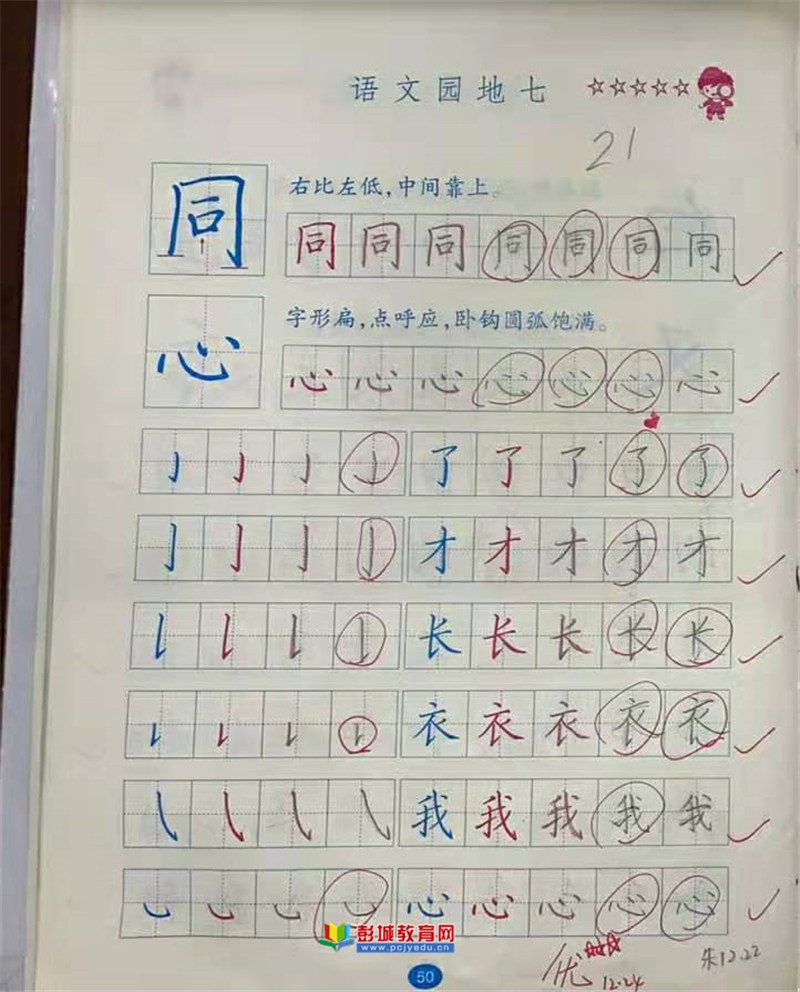 语文园地七 ☆☆☆☆☆
21
同 右比左低，中间靠上。
同 同 同 同 同 同 同
心 字形扁，点呼应，卧钩圆弧饱满。
心 心 心 心 心 心 心
亅 亅 亅 亅 了 了 了 了 了
亅 亅 亅 亅 才 才 才 才 才
𠄌 𠄌 𠄌 𠄌 长 长 长 长 长
𠄌 𠄌 𠄌 𠄌 衣 衣 衣 衣 衣
㇂ ㇂ ㇂ ㇂ 我 我 我 我 我
㇃ ㇃ ㇃ ㇃ 心 心 心 心 心
彭城教育网
www.pcjyedu.cn
优 12.24
朱12.22
50